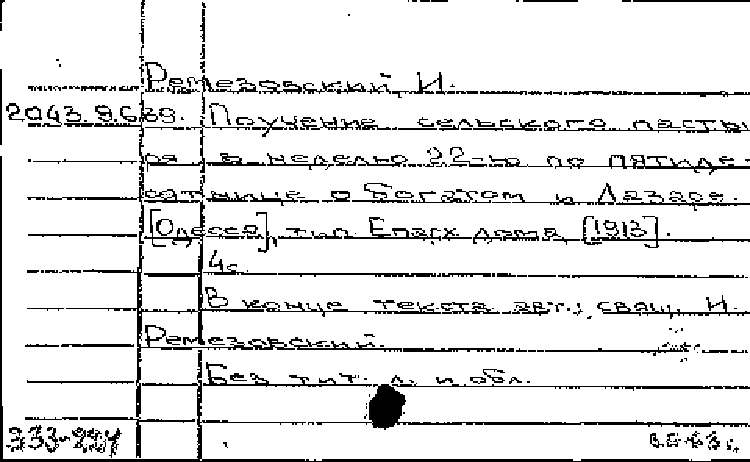 Ремезовский, И.
2043.9.638. Поучение сельского пасты
ря в неделю 22-ю по пятиде-
сятнице о богатом и Лазаре.
[Одесса], тип. Епарх. дома, [1913].
4с.
В конце текста авт.: свящ. И.
Ремезовский.
Без тит. л. и обл.
333-224